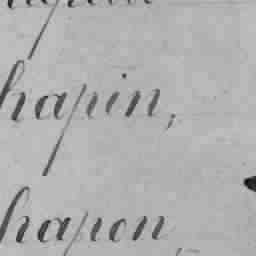 hapin,
hapon,